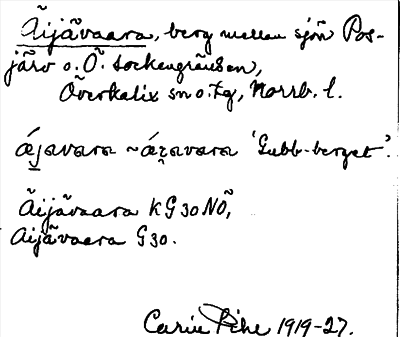 Äijävaara, berg mellan sjön Pos-
järv o. Ö. sockengränsen,
Överkalix sn o. tg, Norrb. l.
ái̯avara ~ 'Gubb-berget'.
Äijävaara kG 30 NÖ,
Äijävaara G 30.
Carin Pihl 1919-27.